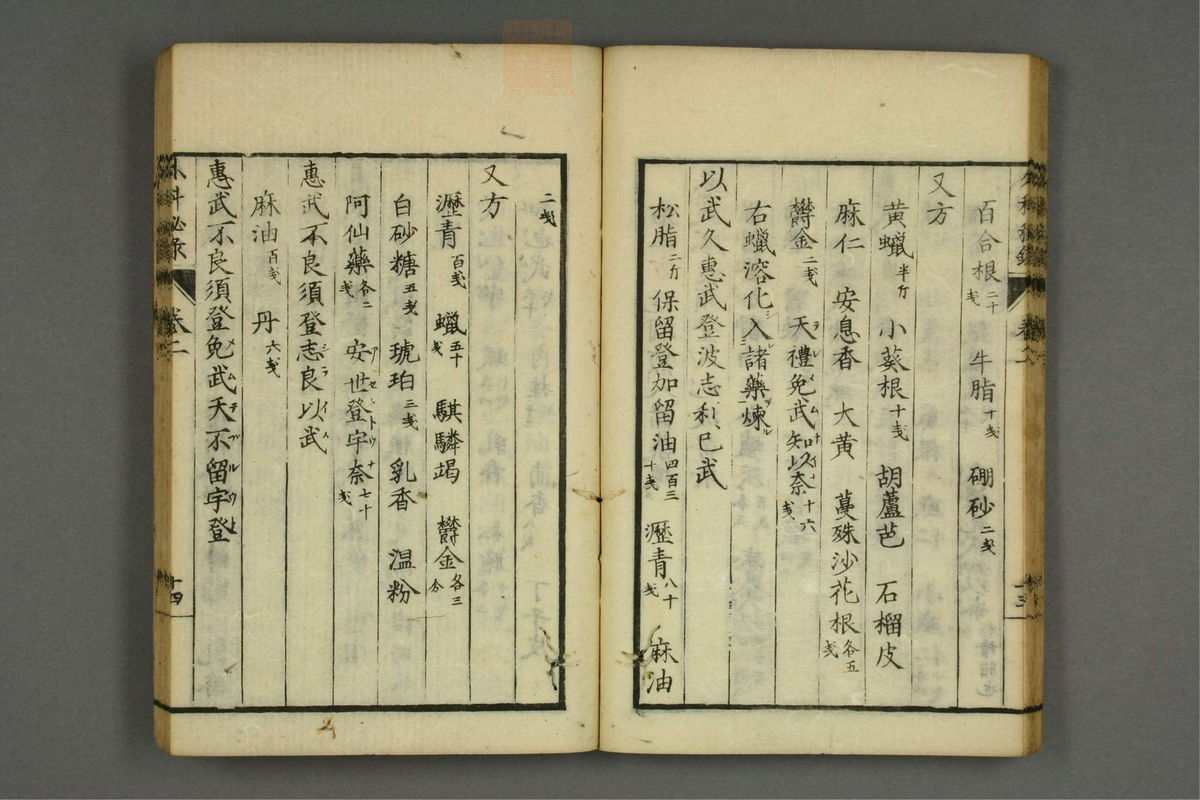 百合根二十戔　牛脂十戔　硼砂二戔
又方
黄蠟半斤　小葵根十戔　胡蘆芭　石榴皮
麻仁　安息香　大黄　蔓殊沙花根各五戔
欝金二戔　天禮免武知以奈十六戔
右蠟溶化シ入諸藥煉ル
以武久惠武登波志利巳武
松脂二斤　保留登加留油四百三十戔　瀝青八十戔　麻油
二戔
又方
瀝青百戔　蠟五十戔　騏驎竭　欝金各三分
白砂糖五戔　琥珀三戔　乳香　温粉
阿仙藥各二戔　安世登宇奈七十戔
惠武不良須登志良以武
麻油百戔　丹六戔
惠武不良須登免武天不留宇登
外科秘录　卷二　十四